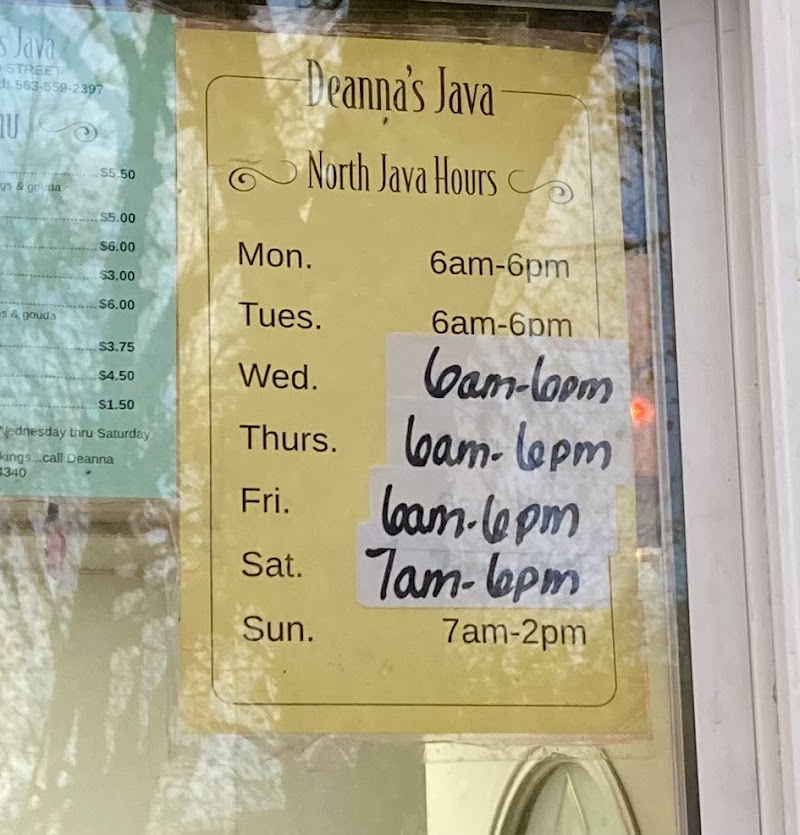 s Java
STREET
563-559-2397
nu
$5.50
gs & gouda
$5.00
$6.00
$3.00
$6.00
s & gouda
$3.75
$4.50
$1.50
Wednesday thru Saturday
kings...call Deanna
4340
Deanna's Java
North Java Hours
Mon. 6am-6pm
Tues. 6am-6pm
Wed. 6am-6pm
Thurs. 6am-6pm
Fri. 6am-6pm
Sat. 7am-6pm
Sun. 7am-2pm